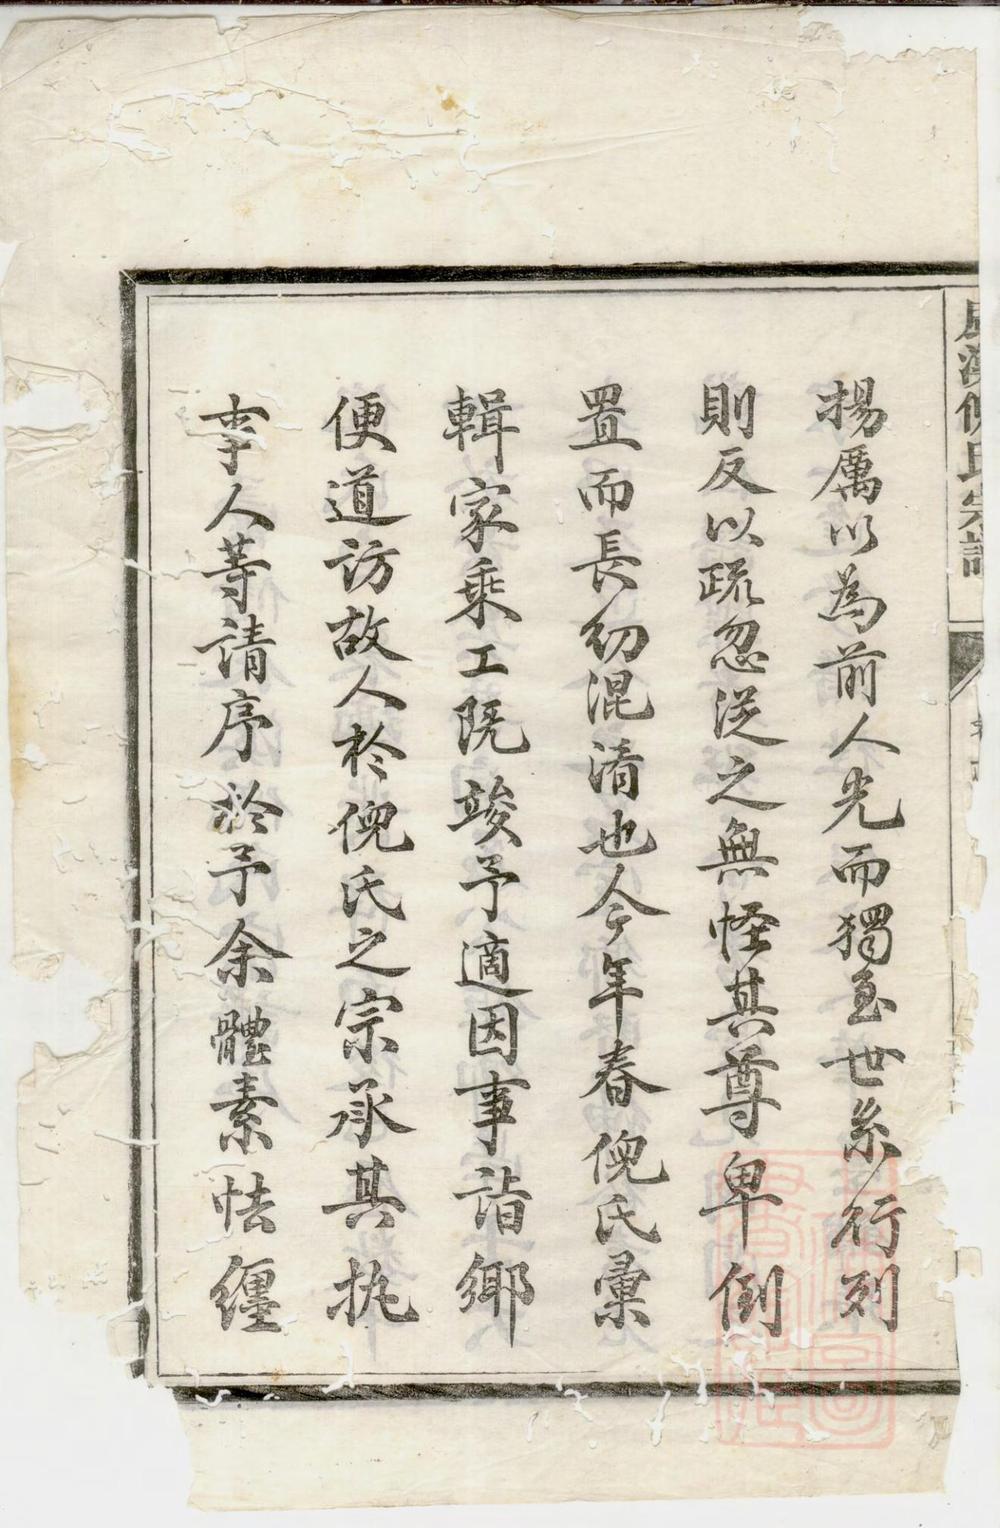 揚厲以為前人光而獨至世系行列
則反以疏忽從之無怪其尊卑倒
置而長幼混淆也今年春倪氏彙
輯家乘工既竣予適因事詣鄉
便道訪故人於倪氏之宗承其執
事人等請序於予余體素怯纏
氏宗譜